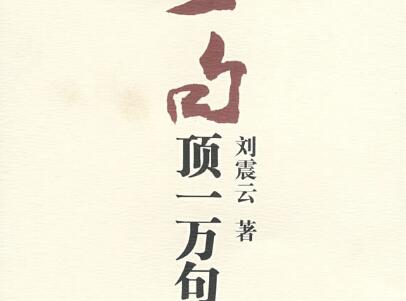 一句顶一万句
刘震云 著